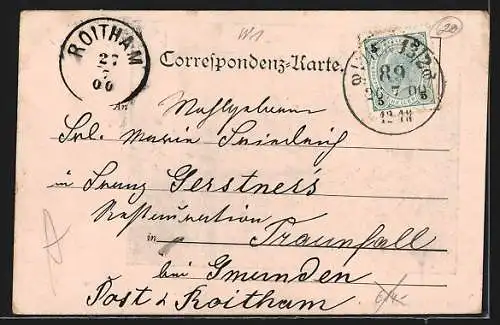 W1
20
ROITHAM
27
7
00
Correspondenz-Karte.
13/2
89
26 7 00
12-1N
An Wohlgeboren
Frl. Marie Friedrich
in Franz Gerstner's
Restauration
in Traunfall
bei Gmunden
Post Roitham